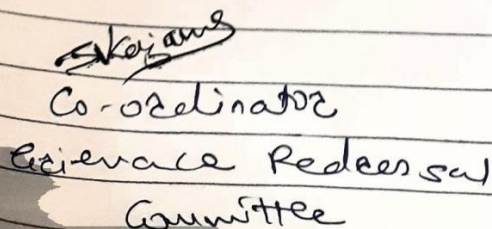 Co-ordinator
Grievance Redressal
Committee